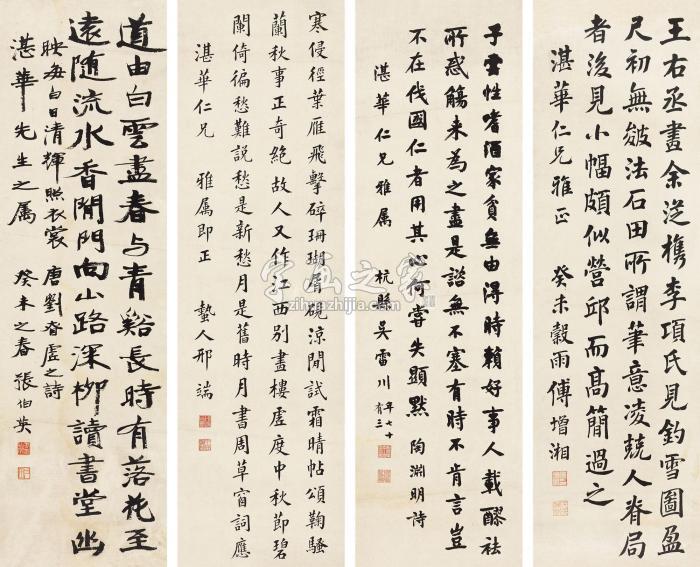 王右丞畫余從檇李項氏見釣雪圖盈
尺初無皴法石田所謂筆意凌兢人脊局
者後見小幅頗似營邱而高簡過之
湛華仁兄雅正 癸未穀雨傅增湘
子雲性嗜酒家貧無由得時賴好事人載醪祛
所惑觴來為之盡是諮無不塞有時不肯言豈
不在伐國仁者用其心何嘗失顯默 陶淵明詩
湛華仁兄雅屬 杭縣吳雷川
年七十
有三
寒侵徑葉雁飛擊碎珊瑚屑硯涼閒試霜晴帖頌鞠騷
蘭秋事正奇絕故人又作江西別畫樓虛度中秋節碧
闌倚徧愁難說愁是新愁月是舊時月書周草窗詞應
湛華仁兄 雅屬即正 蟄人邢端
道由白雲盡春与青谿長時有落花至
遠隨流水香閒門向山路深柳讀書堂幽
映每白日清輝照衣裳 唐劉眘虛之詩
湛華先生之屬 癸未之春張伯英
字画之家
zihuazhijia.com